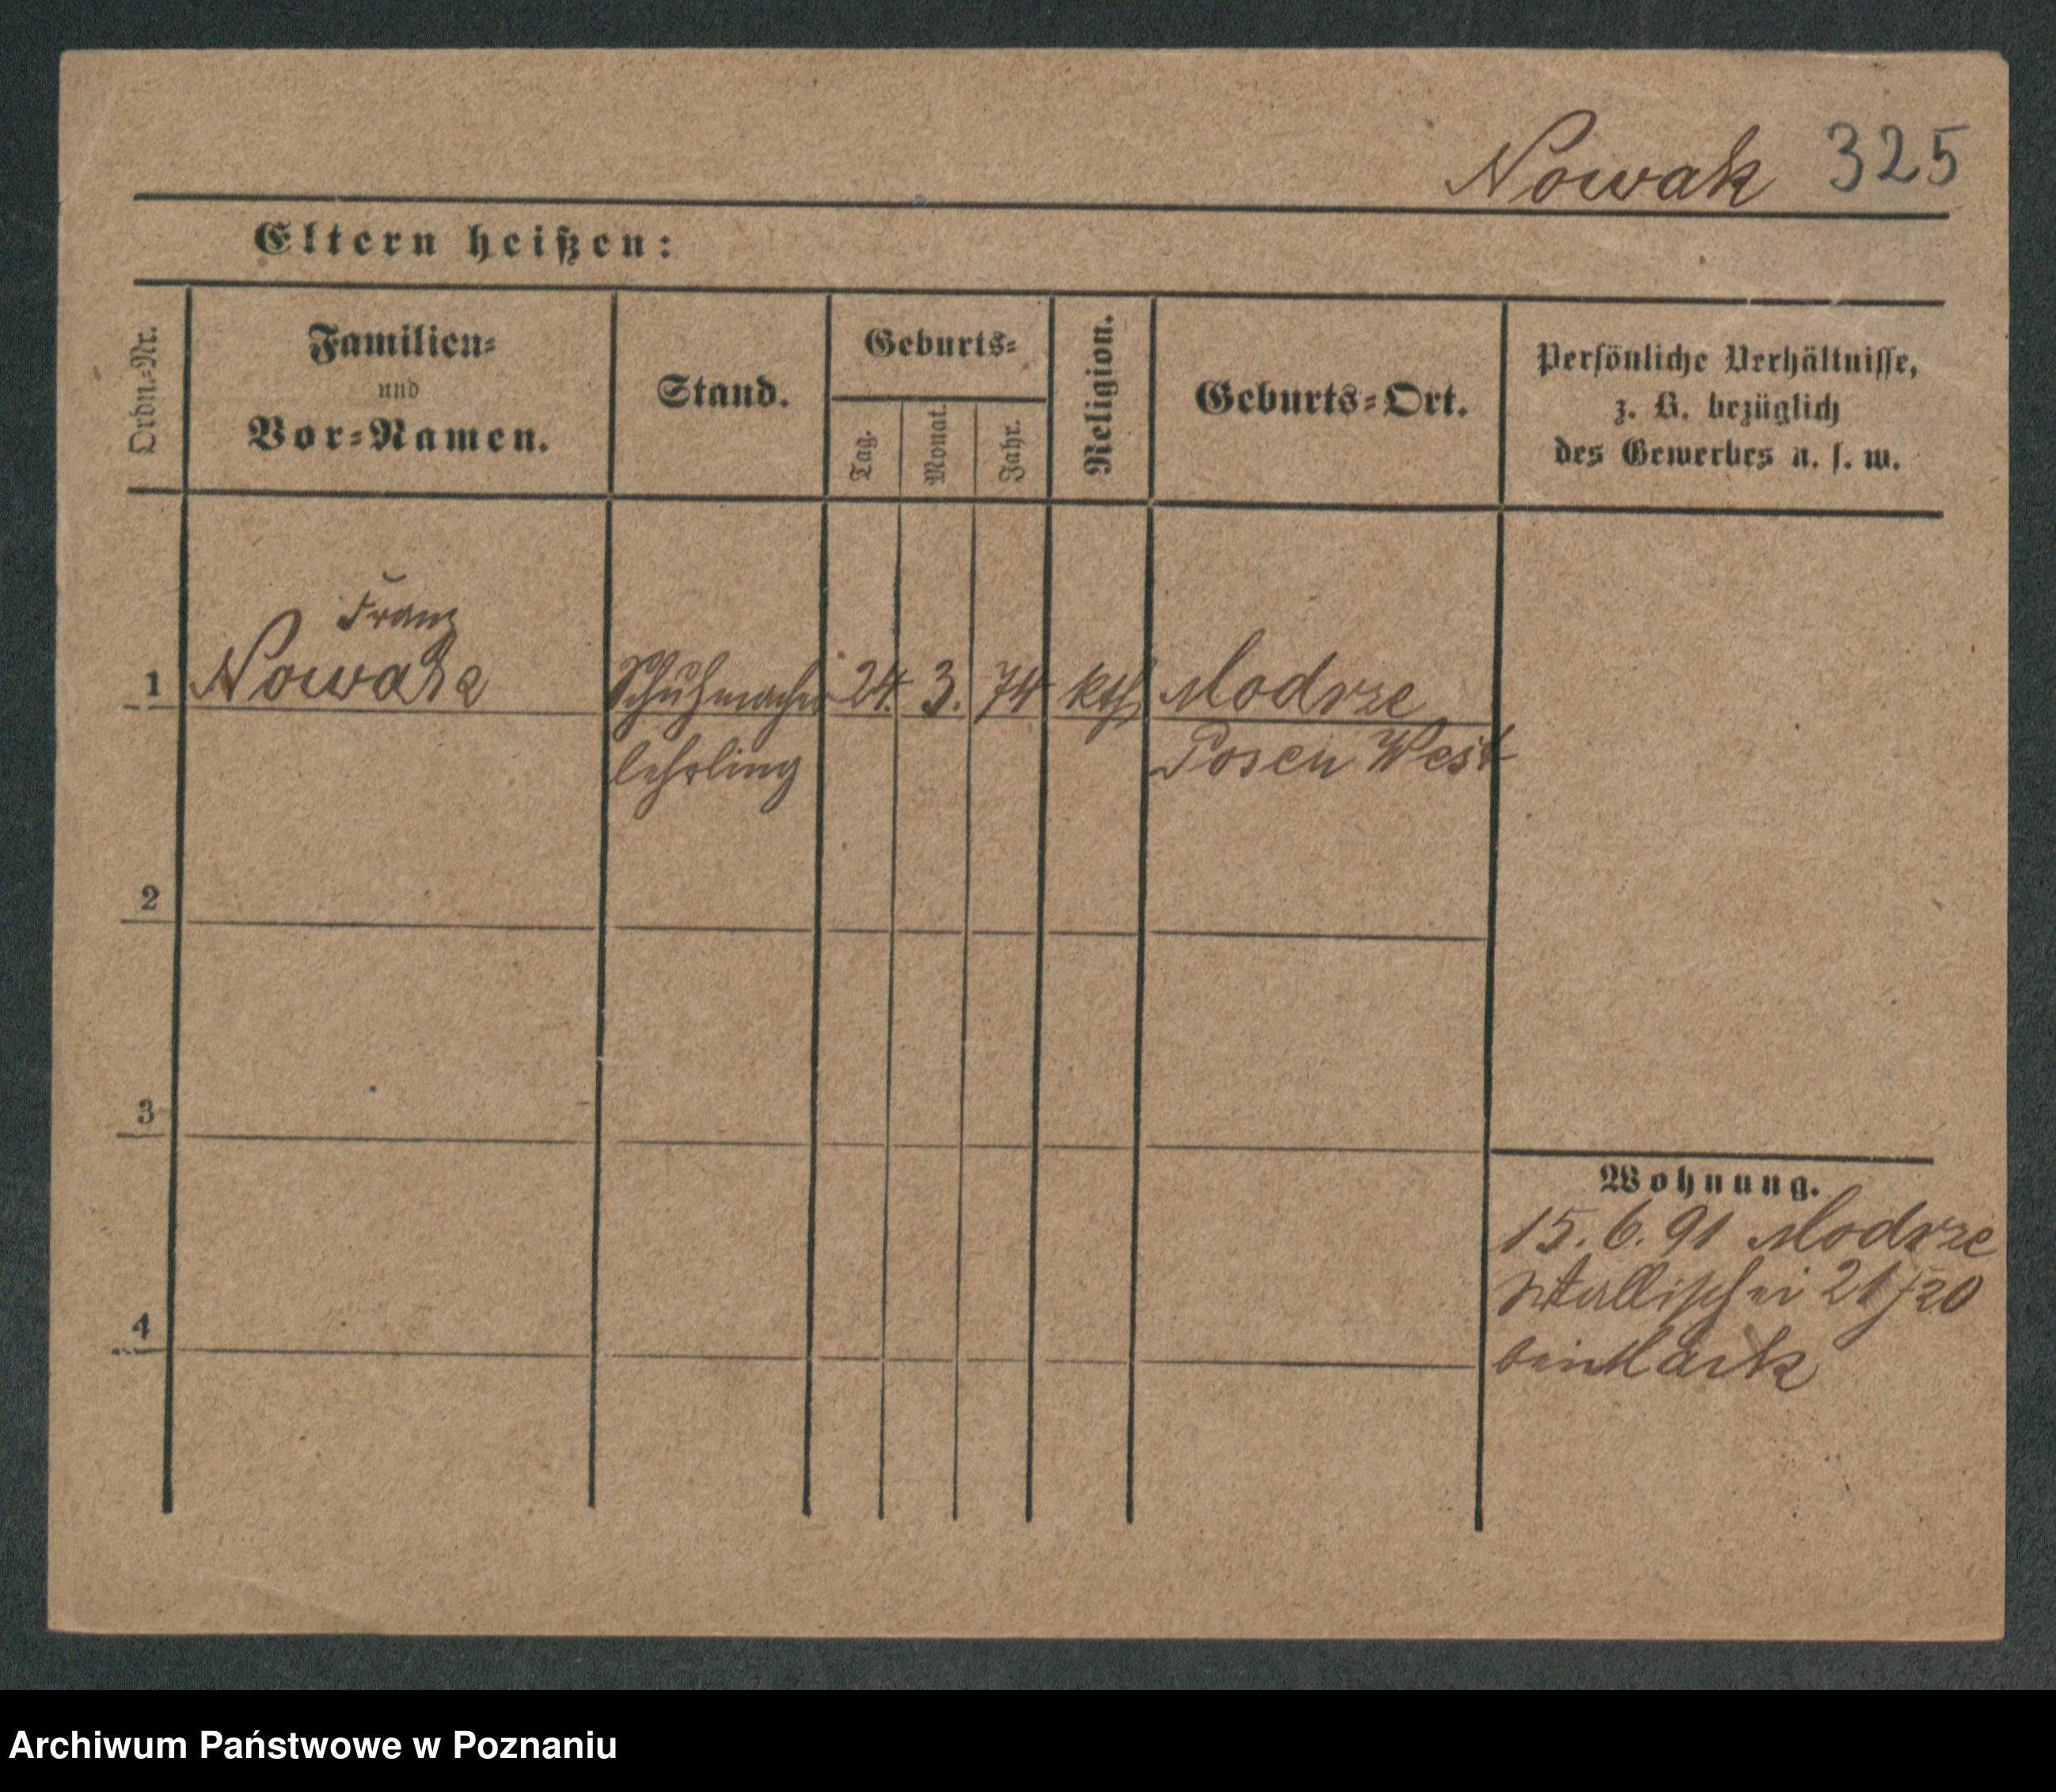 Nowak 325
Eltern heißen:
Ordn.-Nr.
Familien-
und
Vor-Namen.
Stand.
Geburts-
Tag.
Monat.
Jahr.
Religion.
Geburts-Ort.
Persönliche Verhältnisse,
z. B. bezüglich
des Gewerbes u. s. w.
Franz
1 Nowak Schuhmacher 24. 3. 74 kth Modrze
lehrling Posen West
2
3
Wohnung.
15. 6. 91 Modrze
Wallischei 21/20
4
bei
Archiwum Państwowe w Poznaniu